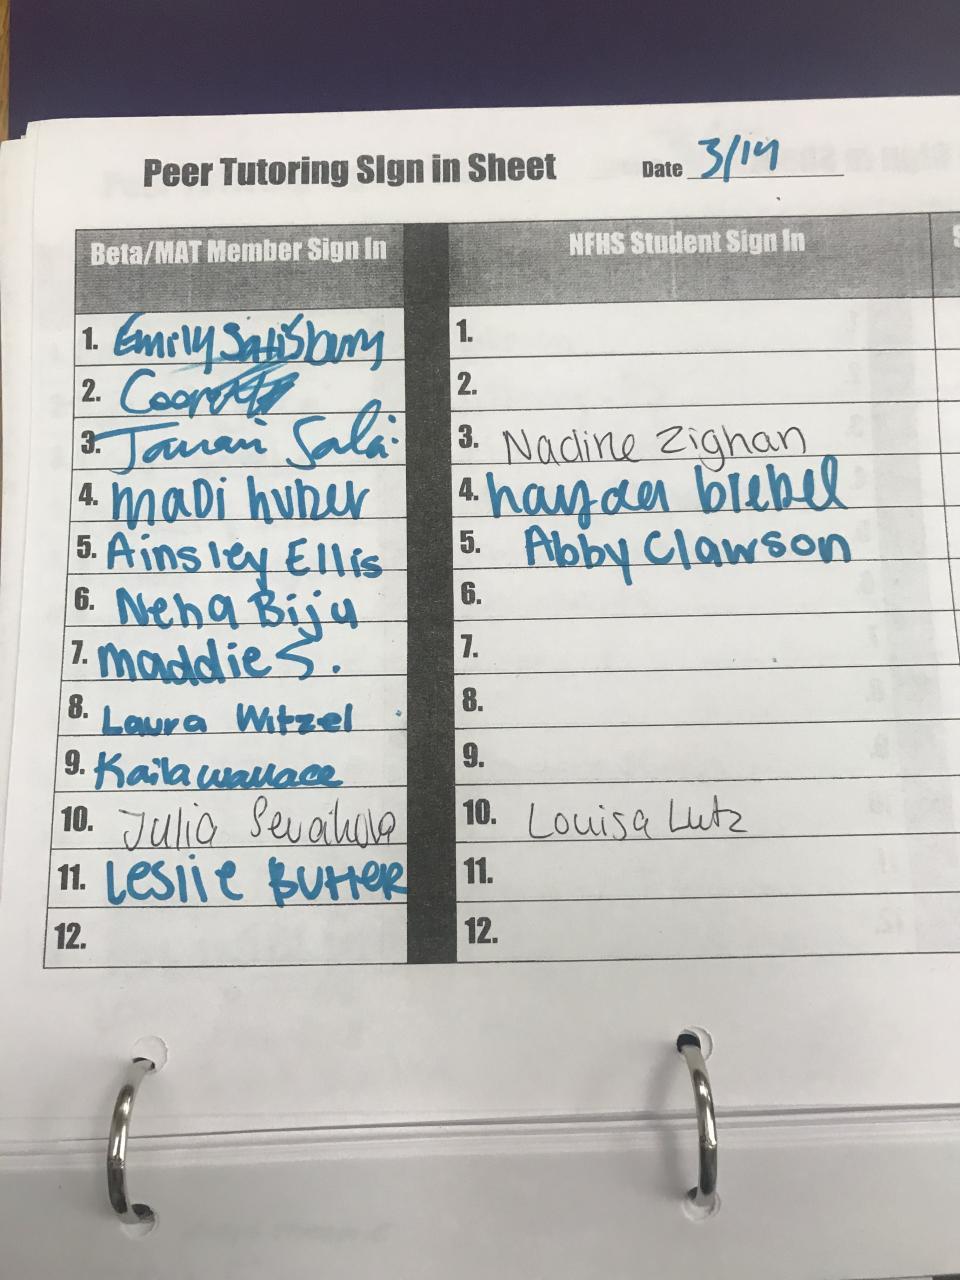 Peer Tutoring SIgn in Sheet Date 3/14
Beta/MAT Member Sign In NFHS Student Sign In
1. Emily 1.
2. 2.
3. 3. Nadine Zighan
4. madi huber 4. hayden
5. Ainsley Ellis 5. Abby Clawson
6. Neha Biju 6.
7. maddie S. 7.
8. Laura Witzel 8.
9. Kaila wallace 9.
10. Julia 10. Louisa Lutz
11. Leslie Butter 11.
12. 12.